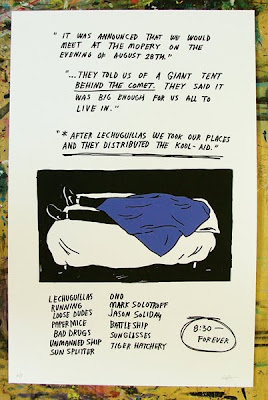 "IT WAS ANNOUNCED THAT WE WOULD
MEET AT THE MOPERY ON THE
EVENING OF AUGUST 28TH."
"...THEY TOLD US OF A GIANT TENT
BEHIND THE COMET. THEY SAID IT
WAS BIG ENOUGH FOR US ALL TO
LIVE IN."
"*AFTER LECHUGUILLAS WE TOOK OUR PLACES
AND THEY DISTRIBUTED THE KOOL-AID."
LECHUGUILLAS
RUNNING
LOOSE DUDES
PAPER MICE
BAD DRUGS
UNMANNED SHIP
SUN SPLITTER
ONO
MARK SOLOTROFF
JASON SOLIDAY
BATTLE SHIP
SUNGLASSES
TIGER HATCHERY
8:30 —
FOREVER